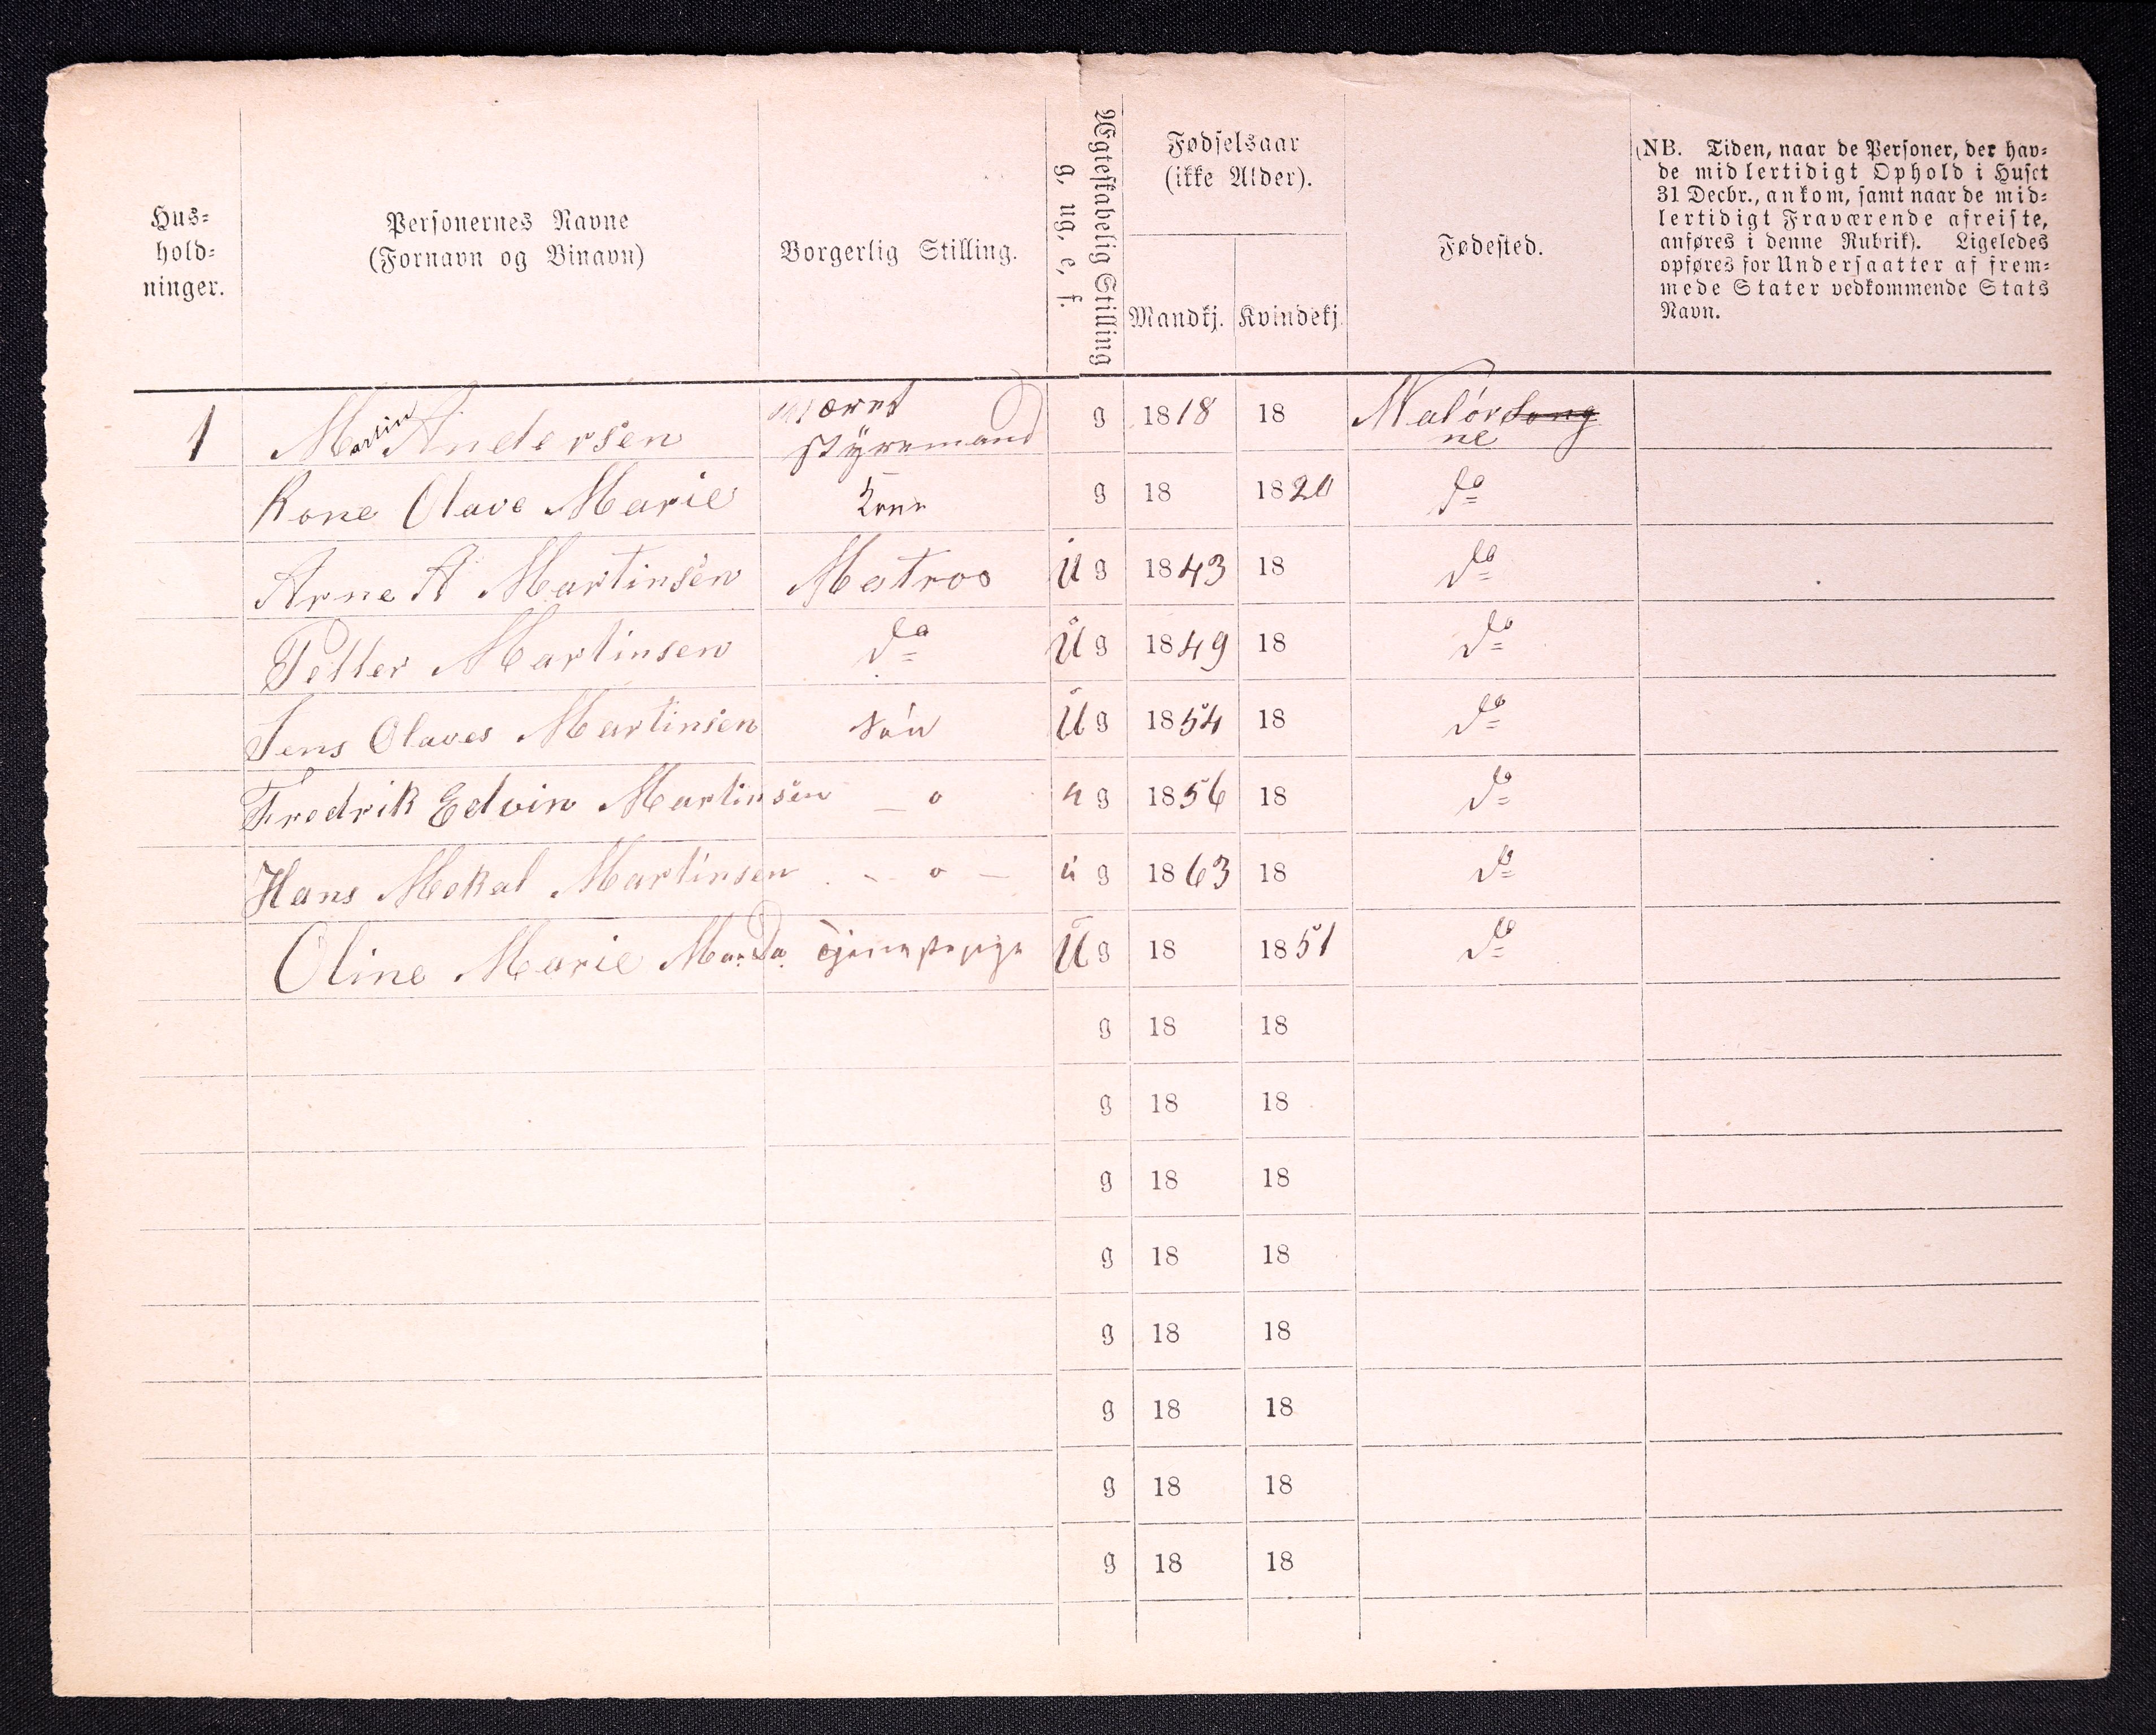 Hus-
hold-
ninger.
Personernes Navne
(Fornavn og Binavn)
Borgerlig Stilling.
Ægteskabelig Stilling
g, ug, e, f.
Fødselsaar
(ikke Alder).
Mandkj. Kvindekj.
Fødested.
(NB. Tiden, naar de Personer, der hav-
de midlertidigt Ophold i Huset
31 Decbr., ankom, samt naar de mid-
lertidigt Fraværende afreiste,
anføres i denne Rubrik). Ligeledes
opføres for Undersaatter af frem-
mede Stater vedkommende Stats
Navn.
1 Martin Andersen været styremand g 1818 18
Kone Olave Marie Kone g 18 1820 do
Arne A Martinsen Matros U g 1843 18 do
Petter Martinsen do U g 1849 18 do
Jens Olaves Martinsen Sön U g 1854 18 do
Fredrik Edvin Martinsen — o u g 1856 18 do
Hans Mekal Martinsen — o — u g 1863 18 do
Oline Marie Tjenestepige U g 18 1851 do
g 18 18
g 18 18
g 18 18
g 18 18
g 18 18
g 18 18
g 18 18
g 18 18